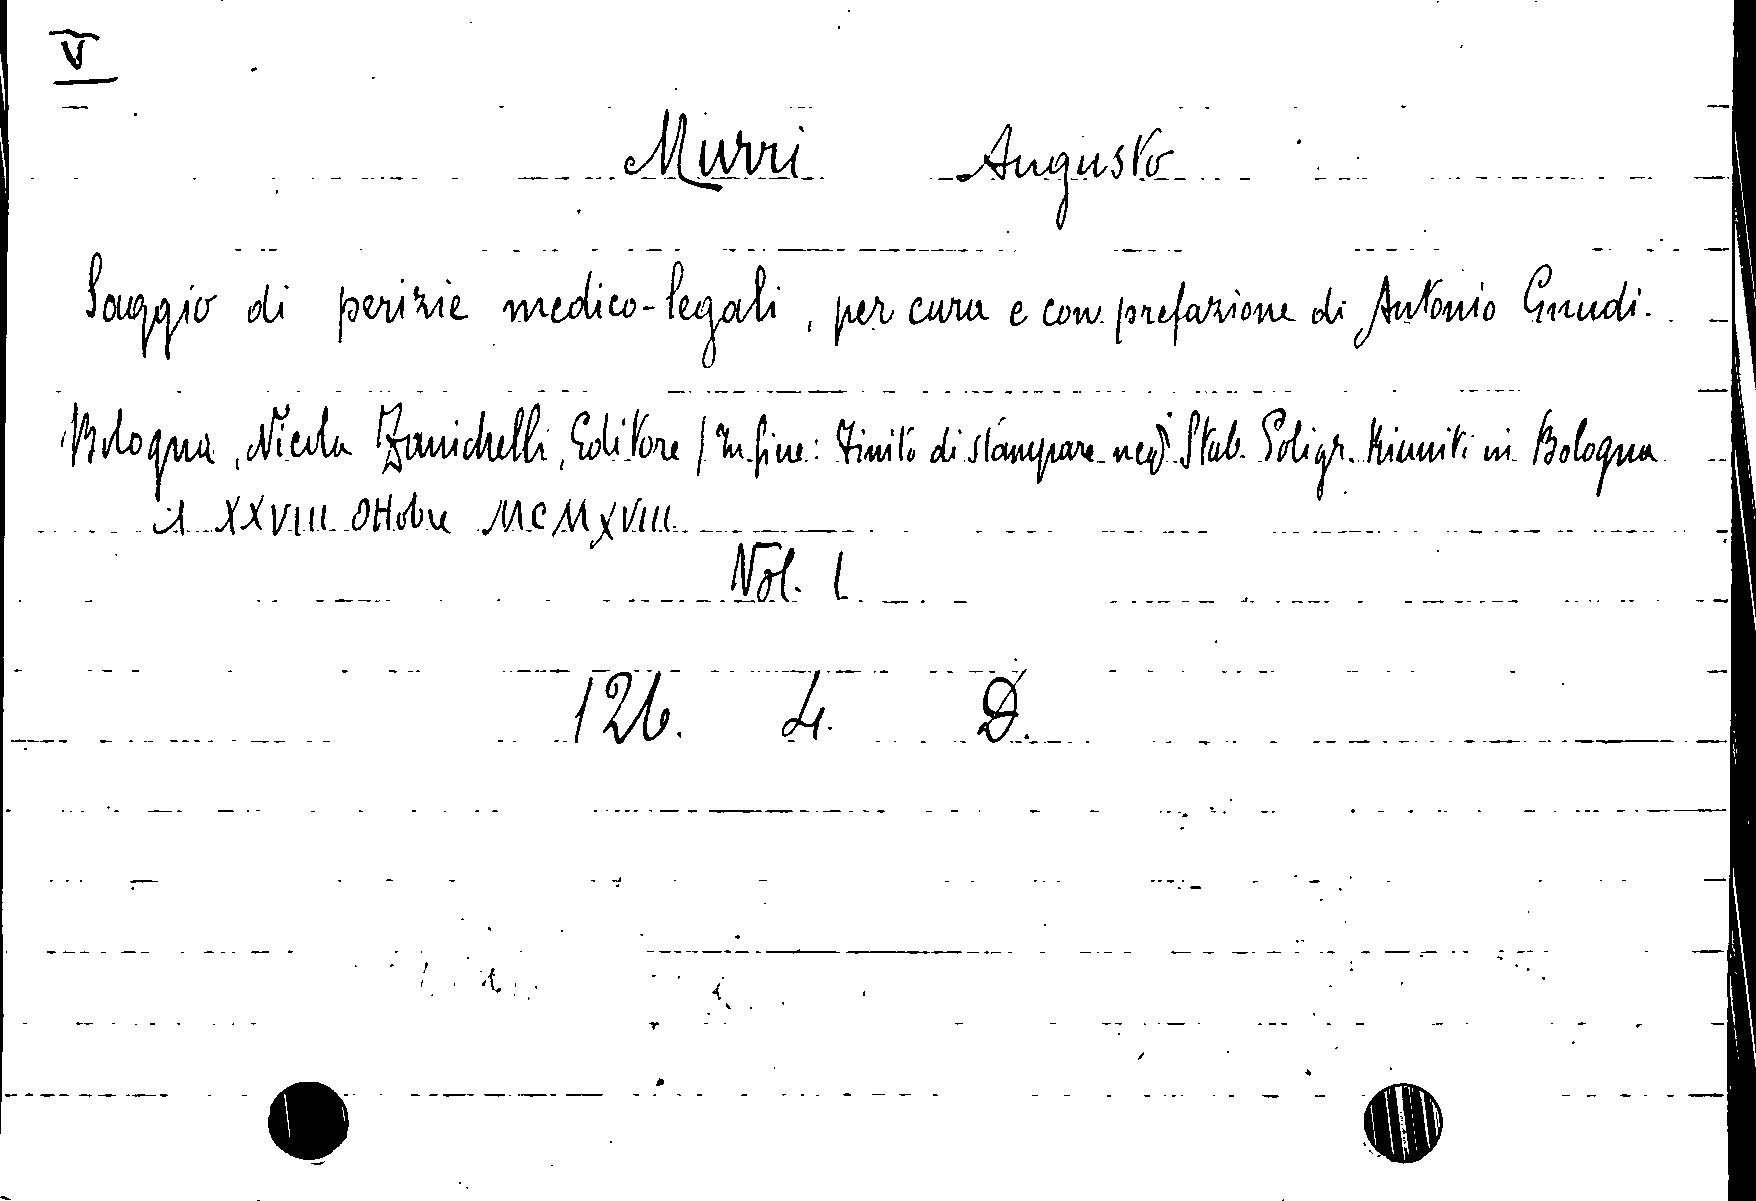 V
Murri Augusto
Saggio di perizie medico-legali, per cura e con prefazione di Antonio Gnudi.
Bologna, Nicola Zanichelli, Editore / In fine: Finito di stampare negli Stab. Poligr. Riuniti in Bologna
il XXVIII Ottobre MCMXVIII
Vol. 1
126. 4. D.